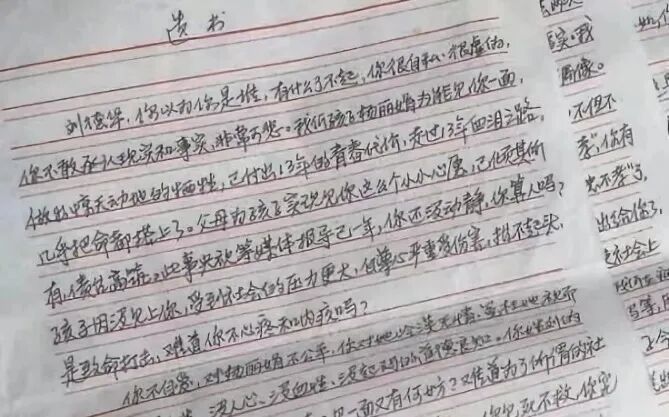 遗书
刘德华,你以为你是谁,有什么了不起,你很自私、很虚伪,
你不敢承认现实和事实,非常可悲。我们孩子杨丽娟为能见你一面,
做的惊天动地的牺牲,已付出,13年的青春代价,走过13年血泪之路,
几乎把命都搭上了。父母为孩子实现见你这么个小小心愿,已倾其所
有,债台高筑。此事央视等媒体报导已一年,你还没动静,你算人吗?
孩子因没见上你,受到社会的压力更大,自尊心严重受伤害,抬不起头,
是致命打击,难道你不心疼和内疚吗?
你不自爱,对杨丽娟不公平,你对她的冷漠无情
没人心、没血性、没起码的道德良知。
见一面又有何妨?难道为了所谓的社
死不救,你完
实。我
不但不
孝,你有
忠不孝了,
出给你了,
社会上